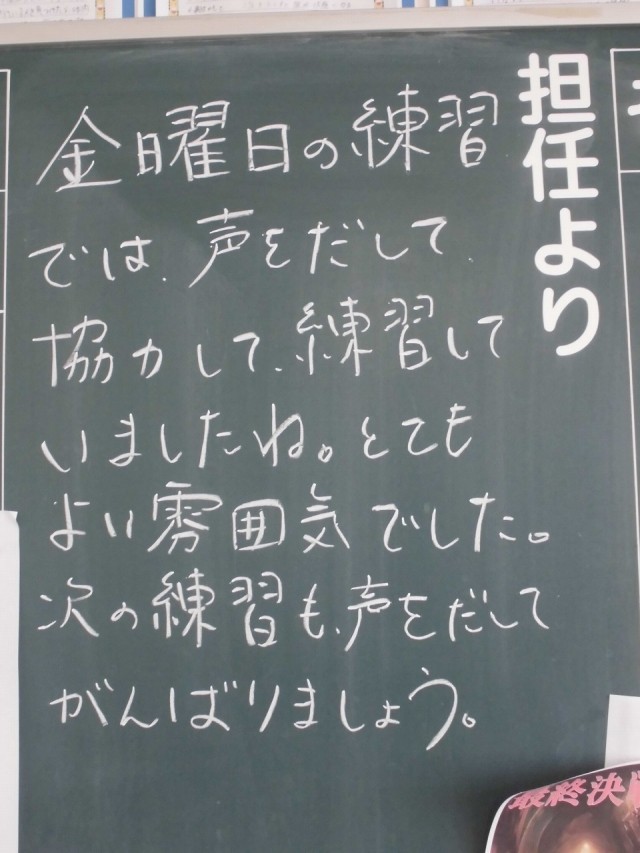 担任より
金曜日の練習
では、声をだして、
協力して、練習して
いましたね。とても
よい雰囲気でした。
次の練習も、声をだして
がんばりましょう。
最終決